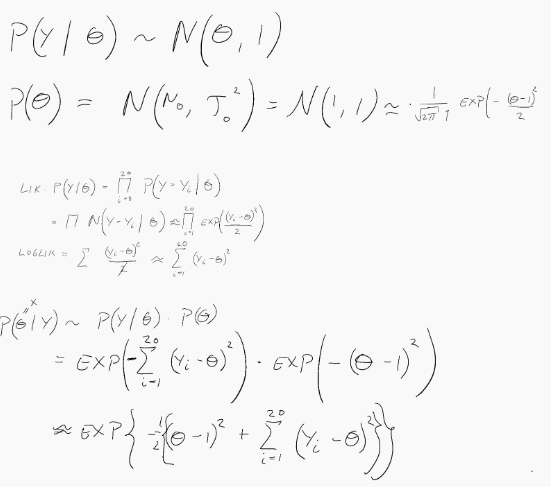 P(Y|θ) ~ N(θ, 1)
P(θ) = N(N₀, T₀²) = N(1, 1) ≈ · 1/√2π 1 EXP(- (θ-1)²/2
LIK: P(Y|θ) = ∏_{i=1}^{20} P(Y=Y_i|θ)
= ∏ N(Y-Y_i|θ) ≈ ∏_{i=1}^{20} EXP((Y_i-θ)²/2)
LOGLIK = ∑ (Y_i-θ)²/2 ≈ ∑_{i=1}^{20} (Y_i-θ)²
x
P(θ|Y) ~ P(Y|θ) · P(θ)
= EXP(-∑_{i=1}^{20} (Y_i-θ)²) · EXP(-(θ-1)²)
≈ EXP{-1/2{(θ-1)² + ∑_{i=1}^{20} (Y_i-θ)²}}